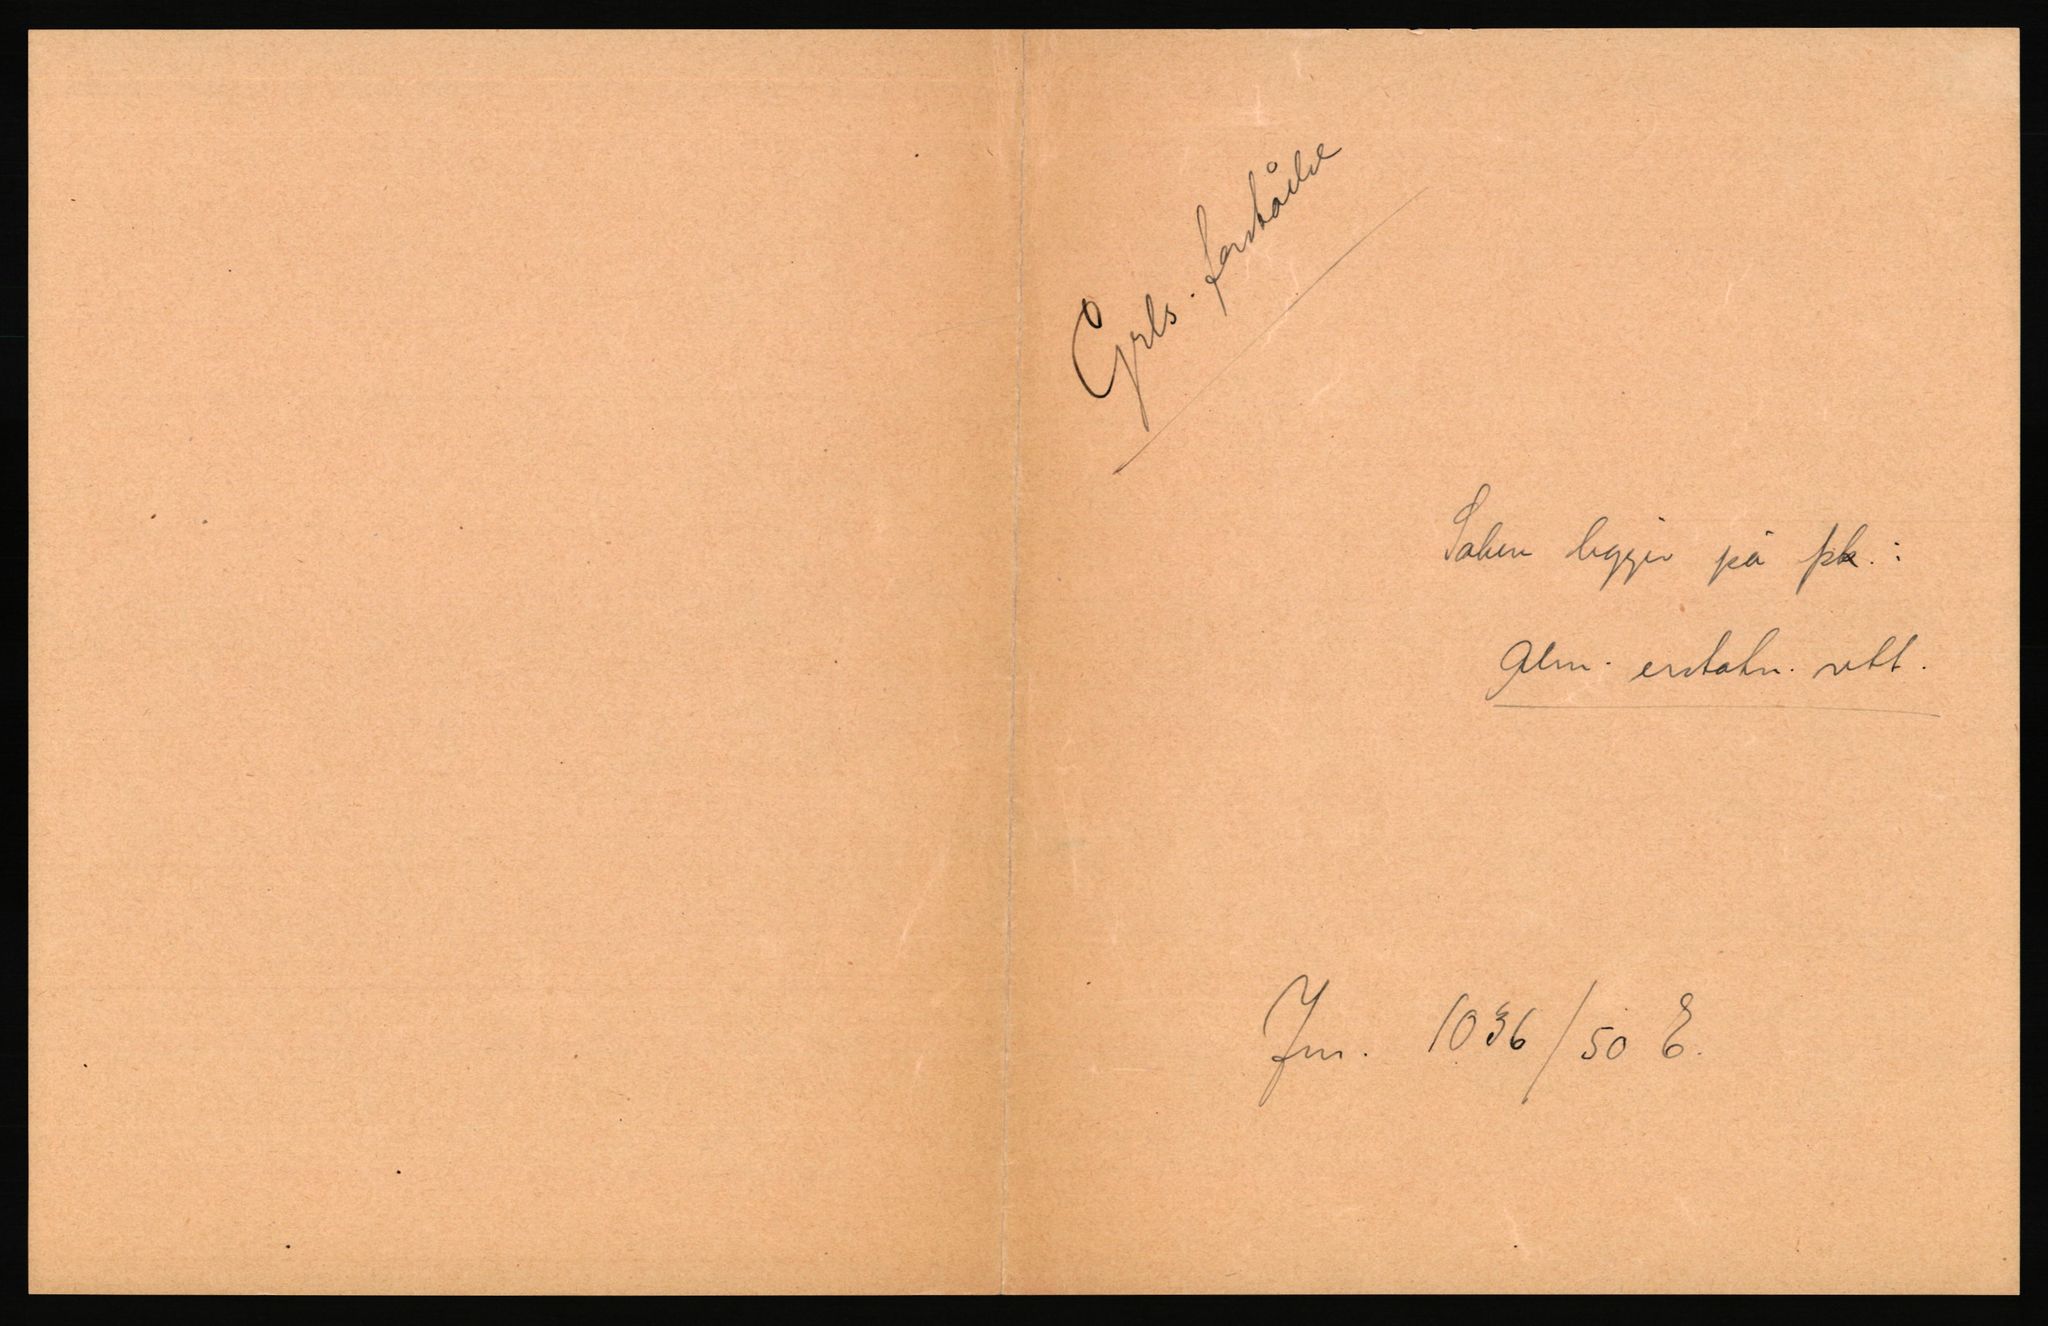 Grls. forståelse
Saken ligger på pk. :
Alm. erstatn. vtt.
Jnr. 1036/50 E.